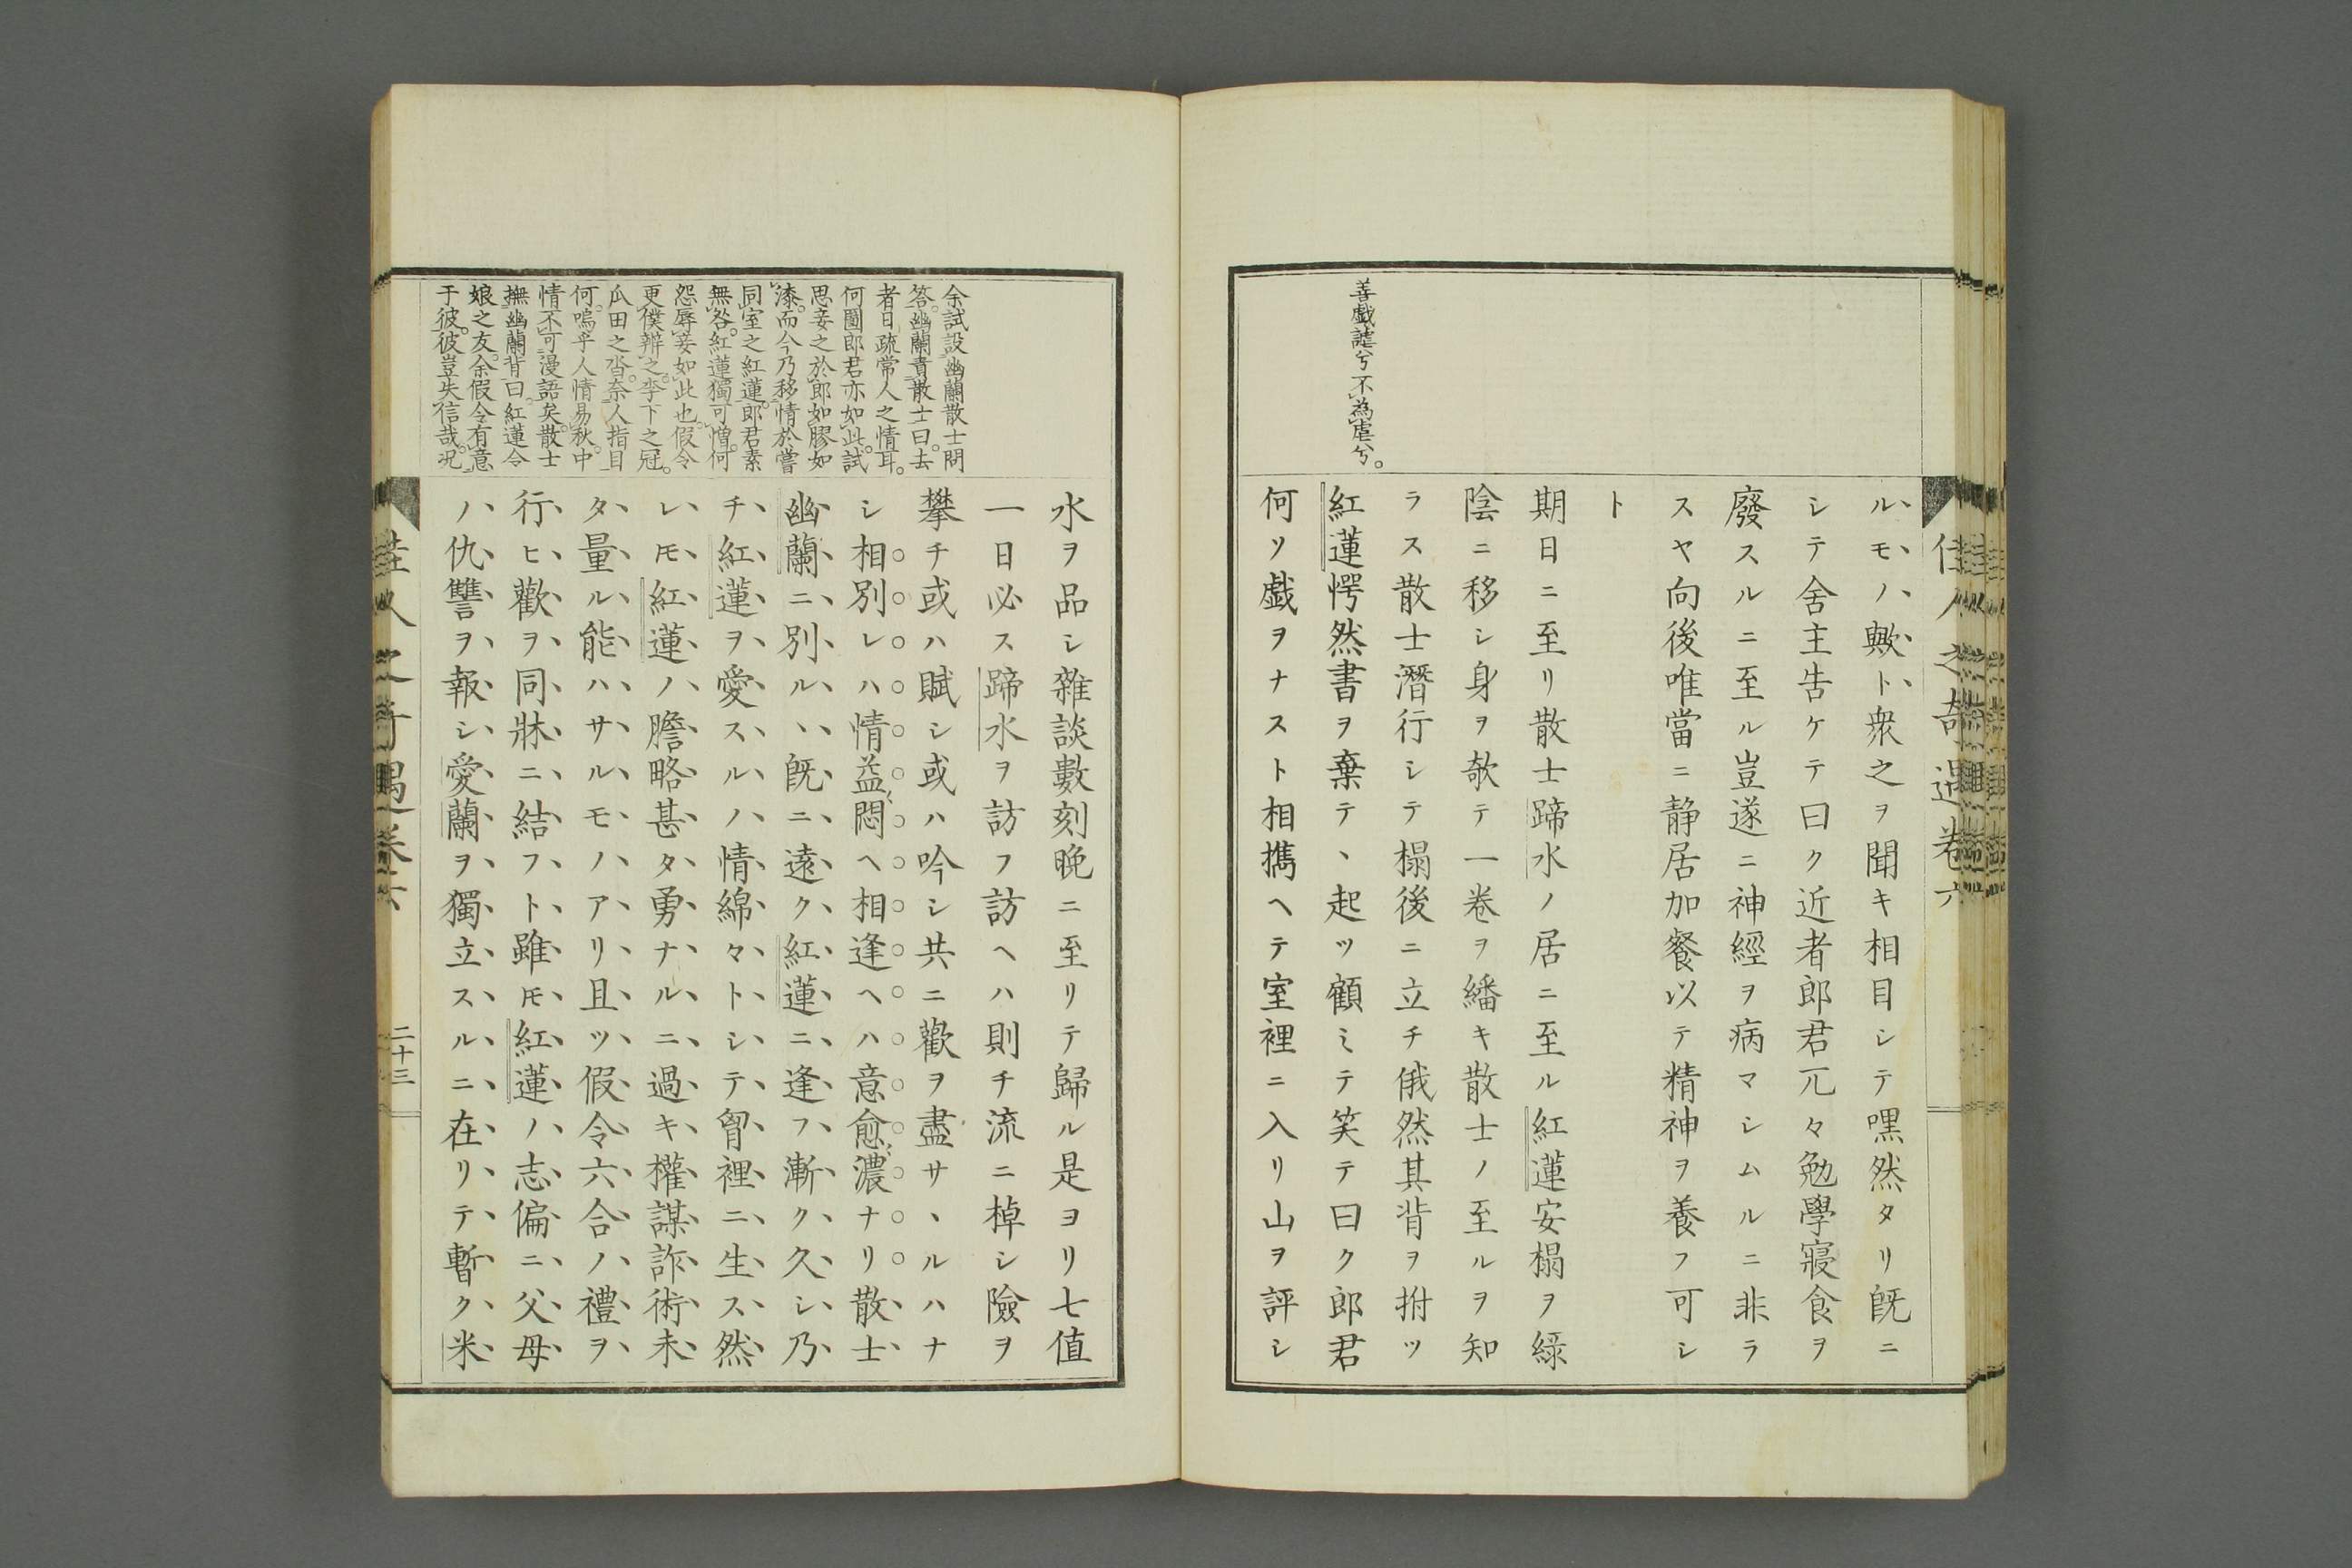 佳人之奇遇卷六
善戯謔兮不為虐兮。
ルモノ歟ト衆之ヲ聞キ相目シテ嘿然タリ既ニ
シテ舍主告ケテ曰ク近者郎君兀々勉學寢食ヲ
廢スルニ至ル豈遂ニ神經ヲ病マシムルニ非ラ
スヤ向後唯當ニ静居加餐以テ精神ヲ養フ可シ
ト
期日ニ至リ散士蹄水ノ居ニ至ル紅蓮安榻ヲ緑
陰ニ移シ身ヲ欹テ一卷ヲ繙キ散士ノ至ルヲ知
ラス散士潛行シテ榻後ニ立チ俄然其背ヲ拊ツ
紅蓮愕然書ヲ棄テヽ起ツ顧ミテ笑テ曰ク郎君
何ソ戯ヲナスト相携ヘテ室裡ニ入リ山ヲ評シ
余試設幽蘭散士問
答。幽蘭責散士曰。去
者日疏常人之情耳。
何圖郎君亦如此。試
思妾之於郎如膠如
漆。而今乃移情於嘗
同室之紅蓮。郎君素
無咎。紅蓮獨可憎。何
怨辱妾如此也。假令
更僕辨之。李下之冠。
瓜田之沓。奈人指目
何。嗚乎人情易秋。中
情不可漫語矣。散士
撫幽蘭背曰。紅蓮令
娘之友。余假令有意
于彼。彼豈失信哉。况
水ヲ品シ雜談數刻晩ニ至リテ歸ル是ヨリ七值
一日必ス蹄水ヲ訪フ訪ヘハ則チ流ニ棹シ險ヲ
攀チ或ハ賦シ或ハ吟シ共ニ歡ヲ盡サヽルハナ
シ相別レハ情益悶ヘ相逢ヘハ意愈濃ナリ散士
幽蘭ニ別ルヽ既ニ遠ク紅蓮ニ逢フ漸ク久シ乃
チ紅蓮ヲ愛スルノ情綿々トシテ胷裡ニ生ス然
レモ紅蓮ノ膽略甚タ勇ナルニ過キ權謀詐術未
タ量ル能ハサルモノアリ且ツ假令六合ノ禮ヲ
行ヒ歡ヲ同牀ニ結フト雖モ紅蓮ノ志偏ニ父母
ノ仇讐ヲ報シ愛蘭ヲ獨立スルニ在リテ暫ク米
佳人之奇遇卷六
二十三